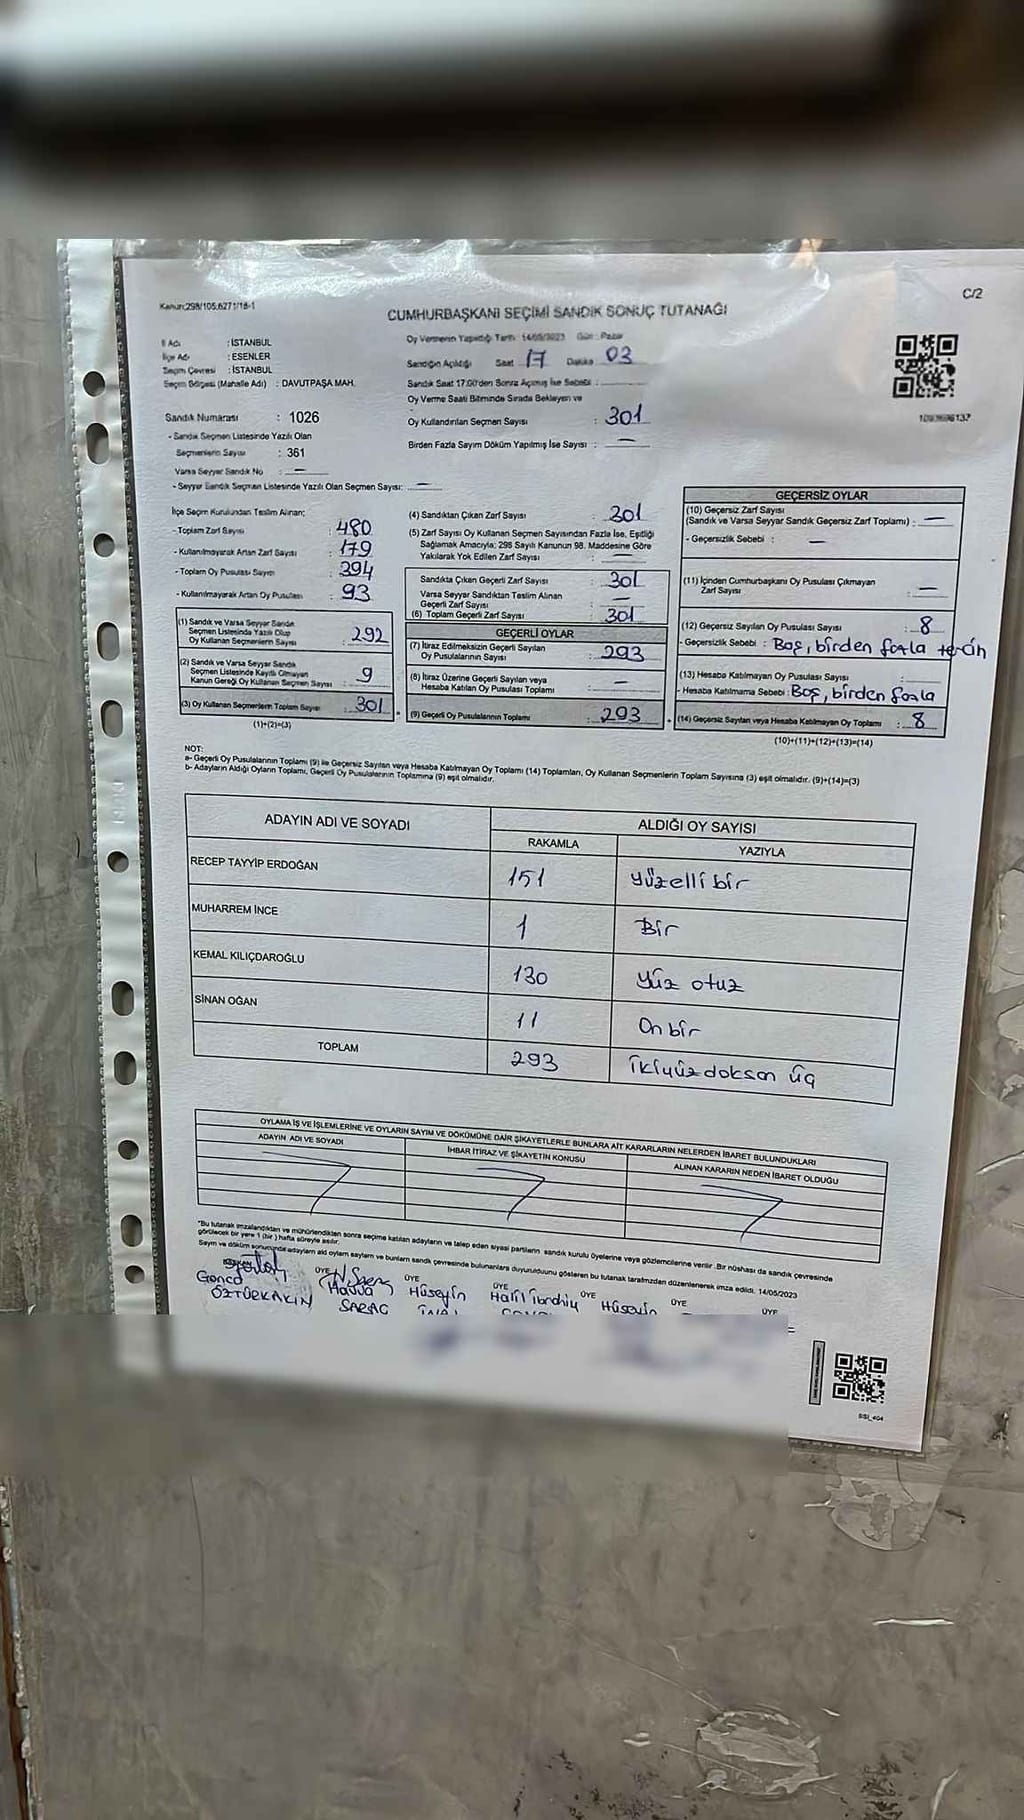 Kanun:298/105;6271/18-1
C/2
CUMHURBAŞKANI SEÇİMİ SANDIK SONUÇ TUTANAĞI
İl Adı : İSTANBUL
İlçe Adı : ESENLER
Seçim Çevresi : İSTANBUL
Seçim Bölgesi (Mahalle Adı) : DAVUTPAŞA MAH.
Sandık Numarası : 1026
- Sandık Seçmen Listesinde Yazılı Olan
Seçmenlerin Sayısı : 361
Varsa Seyyar Sandık No : —
- Seyyar Sandık Seçmen Listesinde Yazılı Olan Seçmen Sayısı: —
Oy Vermenin Yapıldığı Tarih: 14/05/2023 Gün : Pazar
Sandığın Açıldığı Saat 17 Dakika 03
Sandık Saat 17.00'den Sonra Açılmış İse Sebebi :
Oy Verme Saati Bitiminde Sırada Bekleyen ve
Oy Kullandırılan Seçmen Sayısı : 301
Birden Fazla Sayım Döküm Yapılmış İse Sayısı : —
İlçe Seçim Kurulundan Teslim Alınan;
- Toplam Zarf Sayısı : 480
- Kullanılmayarak Artan Zarf Sayısı : 179
- Toplam Oy Pusulası Sayısı : 394
- Kullanılmayarak Artan Oy Pusulası : 93
(1) Sandık ve Varsa Seyyar Sandık
Seçmen Listesinde Yazılı Olup
Oy Kullanan Seçmenlerin Sayısı : 292
(2) Sandık ve Varsa Seyyar Sandık
Seçmen Listesinde Kayıtlı Olmayan
Kanun Gereği Oy Kullanan Seçmen Sayısı : 9
(3) Oy Kullanan Seçmenlerin Toplam Sayısı : 301
(1)+(2)=(3)
(4) Sandıktan Çıkan Zarf Sayısı : 301
(5) Zarf Sayısı Oy Kullanan Seçmen Sayısından Fazla İse, Eşitliği
Sağlamak Amacıyla; 298 Sayılı Kanunun 98. Maddesine Göre
Yakılarak Yok Edilen Zarf Sayısı : —
Sandıkta Çıkan Geçerli Zarf Sayısı : 301
Varsa Seyyar Sandıktan Teslim Alınan
Geçerli Zarf Sayısı : —
(6) Toplam Geçerli Zarf Sayısı : 301
GEÇERLİ OYLAR
(7) İtiraz Edilmeksizin Geçerli Sayılan
Oy Pusulalarının Sayısı : 293
(8) İtiraz Üzerine Geçerli Sayılan veya
Hesaba Katılan Oy Pusulası Toplamı : —
(9) Geçerli Oy Pusulalarının Toplamı : 293
GEÇERSİZ OYLAR
(10) Geçersiz Zarf Sayısı
(Sandık ve Varsa Seyyar Sandık Geçersiz Zarf Toplamı) : —
- Geçersizlik Sebebi : —
(11) İçinden Cumhurbaşkanı Oy Pusulası Çıkmayan
Zarf Sayısı : —
(12) Geçersiz Sayılan Oy Pusulası Sayısı : 8
- Geçersizlik Sebebi : Boş, birden fazla tercih
(13) Hesaba Katılmayan Oy Pusulası Sayısı :
- Hesaba Katılmama Sebebi : Boş, birden fazla
(14) Geçersiz Sayılan veya Hesaba Katılmayan Oy Toplamı : 8
(10)+(11)+(12)+(13)=(14)
NOT:
a- Geçerli Oy Pusulalarının Toplamı (9) ile Geçersiz Sayılan veya Hesaba Katılmayan Oy Toplamı (14) Toplamları, Oy Kullanan Seçmenlerin Toplam Sayısına (3) eşit olmalıdır. (9)+(14)=(3)
b- Adayların Aldığı Oyların Toplamı, Geçerli Oy Pusulalarının Toplamına (9) eşit olmalıdır.
ADAYIN ADI VE SOYADI ALDIĞI OY SAYISI
RAKAMLA YAZIYLA
RECEP TAYYİP ERDOĞAN 151 Yüzelli bir
MUHARREM İNCE 1 Bir
KEMAL KILIÇDAROĞLU 130 Yüz otuz
SİNAN OĞAN 11 On bir
TOPLAM 293 İkiyüzdoksan üç
OYLAMA İŞ VE İŞLEMLERİNE VE OYLARIN SAYIM VE DÖKÜMÜNE DAİR ŞİKAYETLERLE BUNLARA AİT KARARLARIN NELERDEN İBARET BULUNDUKLARI
ADAYIN ADI VE SOYADI İHBAR İTİRAZ VE ŞİKAYETİN KONUSU ALINAN KARARIN NEDEN İBARET OLDUĞU
"Bu tutanak imzalandıktan ve mühürlendikten sonra seçime katılan adayların ve talep eden siyasi partilerin sandık kurulu üyelerine veya gözlemcilerine verilir. Bir nüshası da sandık çevresinde
görülecek bir yere 1 (bir) hafta süreyle asılır.
Sayım ve döküm sonucunda adayların aldığı oyların sayıları ve bunların sandık çevresinde bulunanlara duyurulduğunu gösteren bu tutanak tarafımızdan düzenlenerek imza edildi. 14/05/2023
ÜYE ÜYE ÜYE ÜYE ÜYE ÜYE
Gonca Havva Hüseyin Halil ibrahim Hüseyin
ÖZTÜRKAKIN SARAÇ
SSI_404